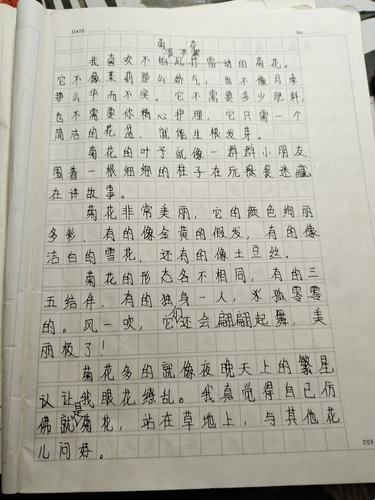 DATE
No
菊花
我喜欢不怕风打雪动的菊花。
它不像茉莉那么娇气，也不像月季
那么华而不实。它不需要多少肥料，
也不需要你精心护理，它只需一个
简洁的花盆，就能生根发芽。
菊花的叶子就像一群群小朋友
围着一根细细的柱子在玩捉迷藏，
在讲故事。
菊花非常美丽，它的颜色绚丽
多彩，有的像金黄的假发，有的像
洁白的雪花，还有的像土豆丝。
菊花的形态各不相同，有的三
五结伴，有的独身一人，孤零零
的。风一吹，它们还会翩翩起舞，美
丽极了！
菊花多的就像夜晚天上的繁星
让我眼花缭乱。我真觉得自己仿
佛就是菊花，站在草地上，与其他花
儿问好。